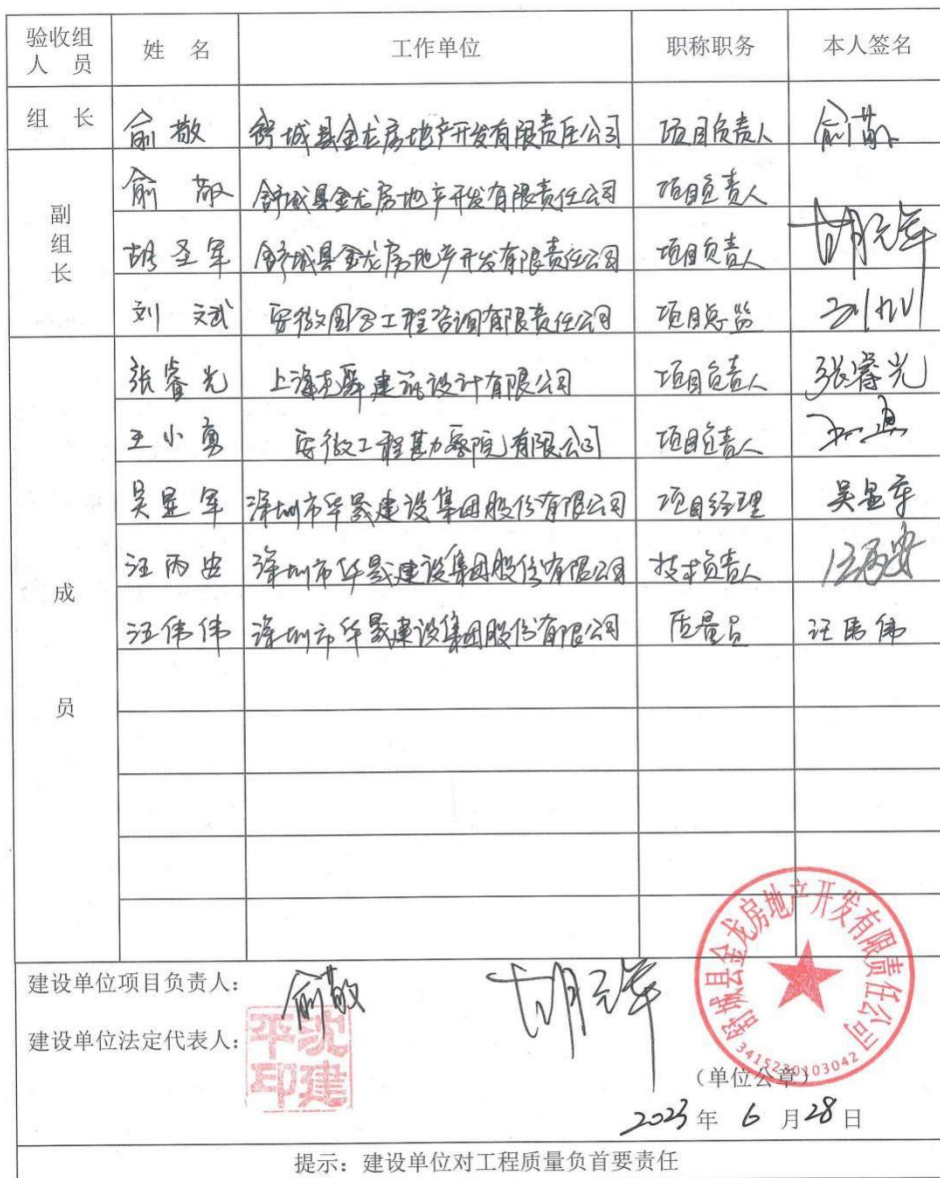 验收组人员 姓 名 工作单位 职称职务 本人签名
组 长 俞敬 舒城县金龙房地产开发有限责任公司 项目负责人 俞敬
副组长 俞敬 舒城县金龙房地产开发有限责任公司 项目负责人
胡圣军 舒城县金龙房地产开发有限责任公司 项目负责人 胡圣军
刘斌 安徽国合工程咨询有限责任公司 项目总监
成员 张睿光 上海龙聚建筑设计有限公司 项目负责人 张睿光
王小勇 安徽工程勘察院有限公司 项目负责人
吴显军 深圳市华晟建设集团股份有限公司 项目经理 吴显军
汪丙安 深圳市华晟建设集团股份有限公司 技术负责人 汪丙安
汪伟伟 深圳市华晟建设集团股份有限公司 质量员 汪伟伟
建设单位项目负责人: 俞敬 胡圣军
建设单位法定代表人: 沈建平印
舒城县金龙房地产开发有限责任公司
3415230103042
(单位公章)
2023 年 6 月 28 日
提示:建设单位对工程质量负首要责任